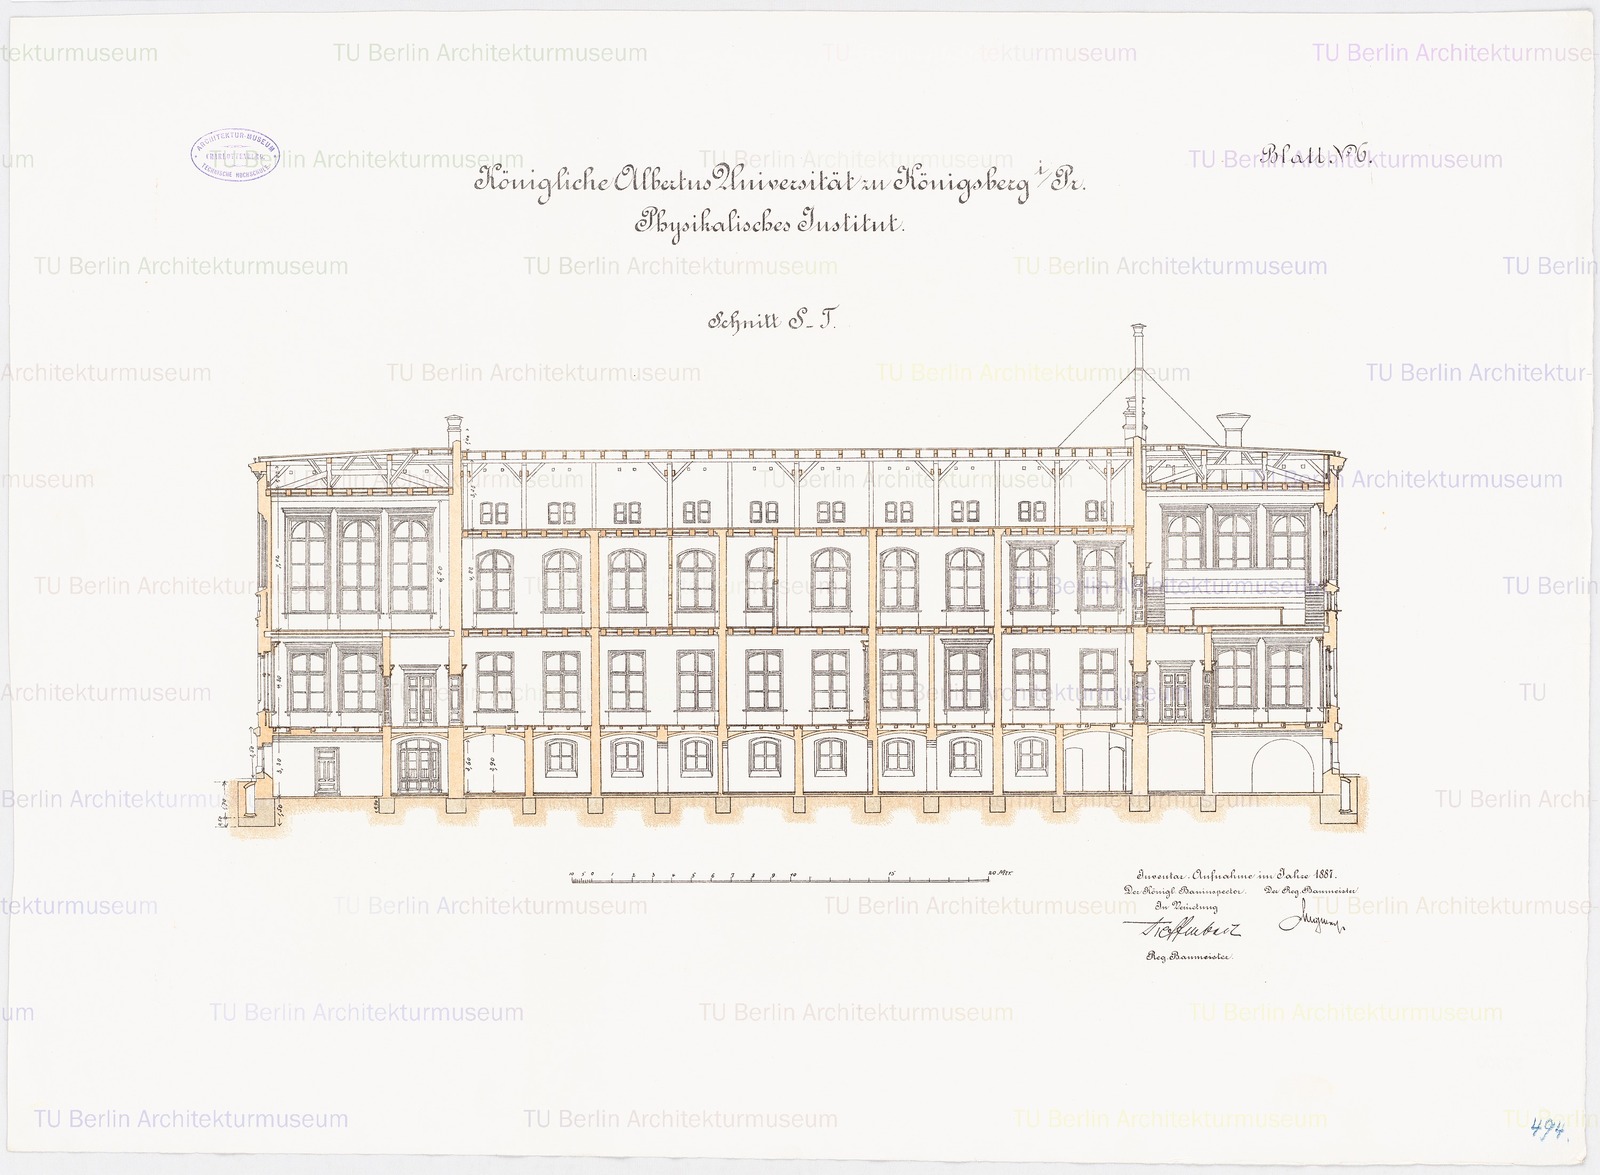 TU Berlin Architekturmuseum
ARCHITEKTUR-MUSEUM
TECHNISCHE HOCHSCHULE
Blatt. No 6.
Königliche Albertus Universität zu Königsberg i/Pr.
Physikalisches Institut.
Schnitt S-T.
10 5 0 1 2 3 4 5 6 7 8 9 10 15 20 Mtr.
Inventar. Aufnahme im Jahre 1887.
Der Königl. Bauinspector. Der Reg. Baumeister
In Vertretung
Reg. Baumeister.
494.